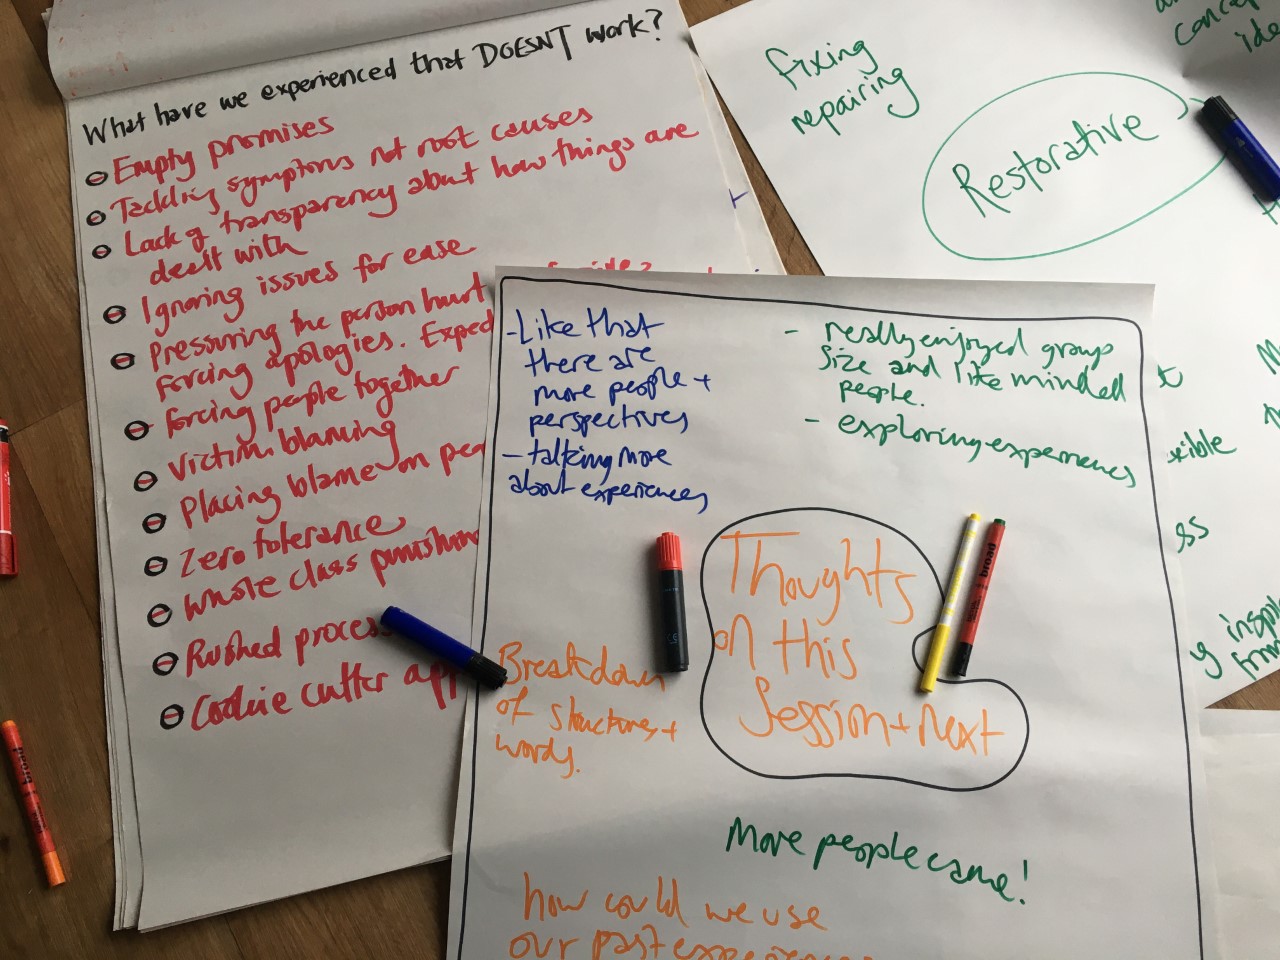 What have we experienced that DOESNT work?
Empty promises
Tackling symptoms not root causes
Lack of transparency about how things are
dealt with
Ignoring issues for ease
Pressuring the person hurt
forcing apologies.
Forcing people together
Victim blaming
Placing blame on
Zero tolerance
Whole class
Rushed
Cookie cutter
fixing
repairing
Restorative
- Like that
there are
more people +
perspectives
- talking more
about experiences
- really enjoyed group
size and like minded
people.
- exploring experiences
Thoughts
on this
Session + next
Breakdown
of structures +
words.
More people came!
how could we use
our past
broad